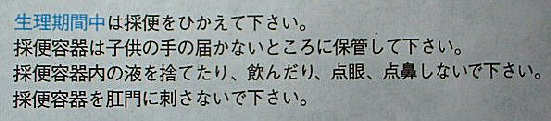 生理期間中は採便をひかえて下さい。
採便容器は子供の手の届かないところに保管して下さい。
採便容器内の液を捨てたり、飲んだり、点眼、点鼻しないで下さい。
採便容器を肛門に刺さないで下さい。